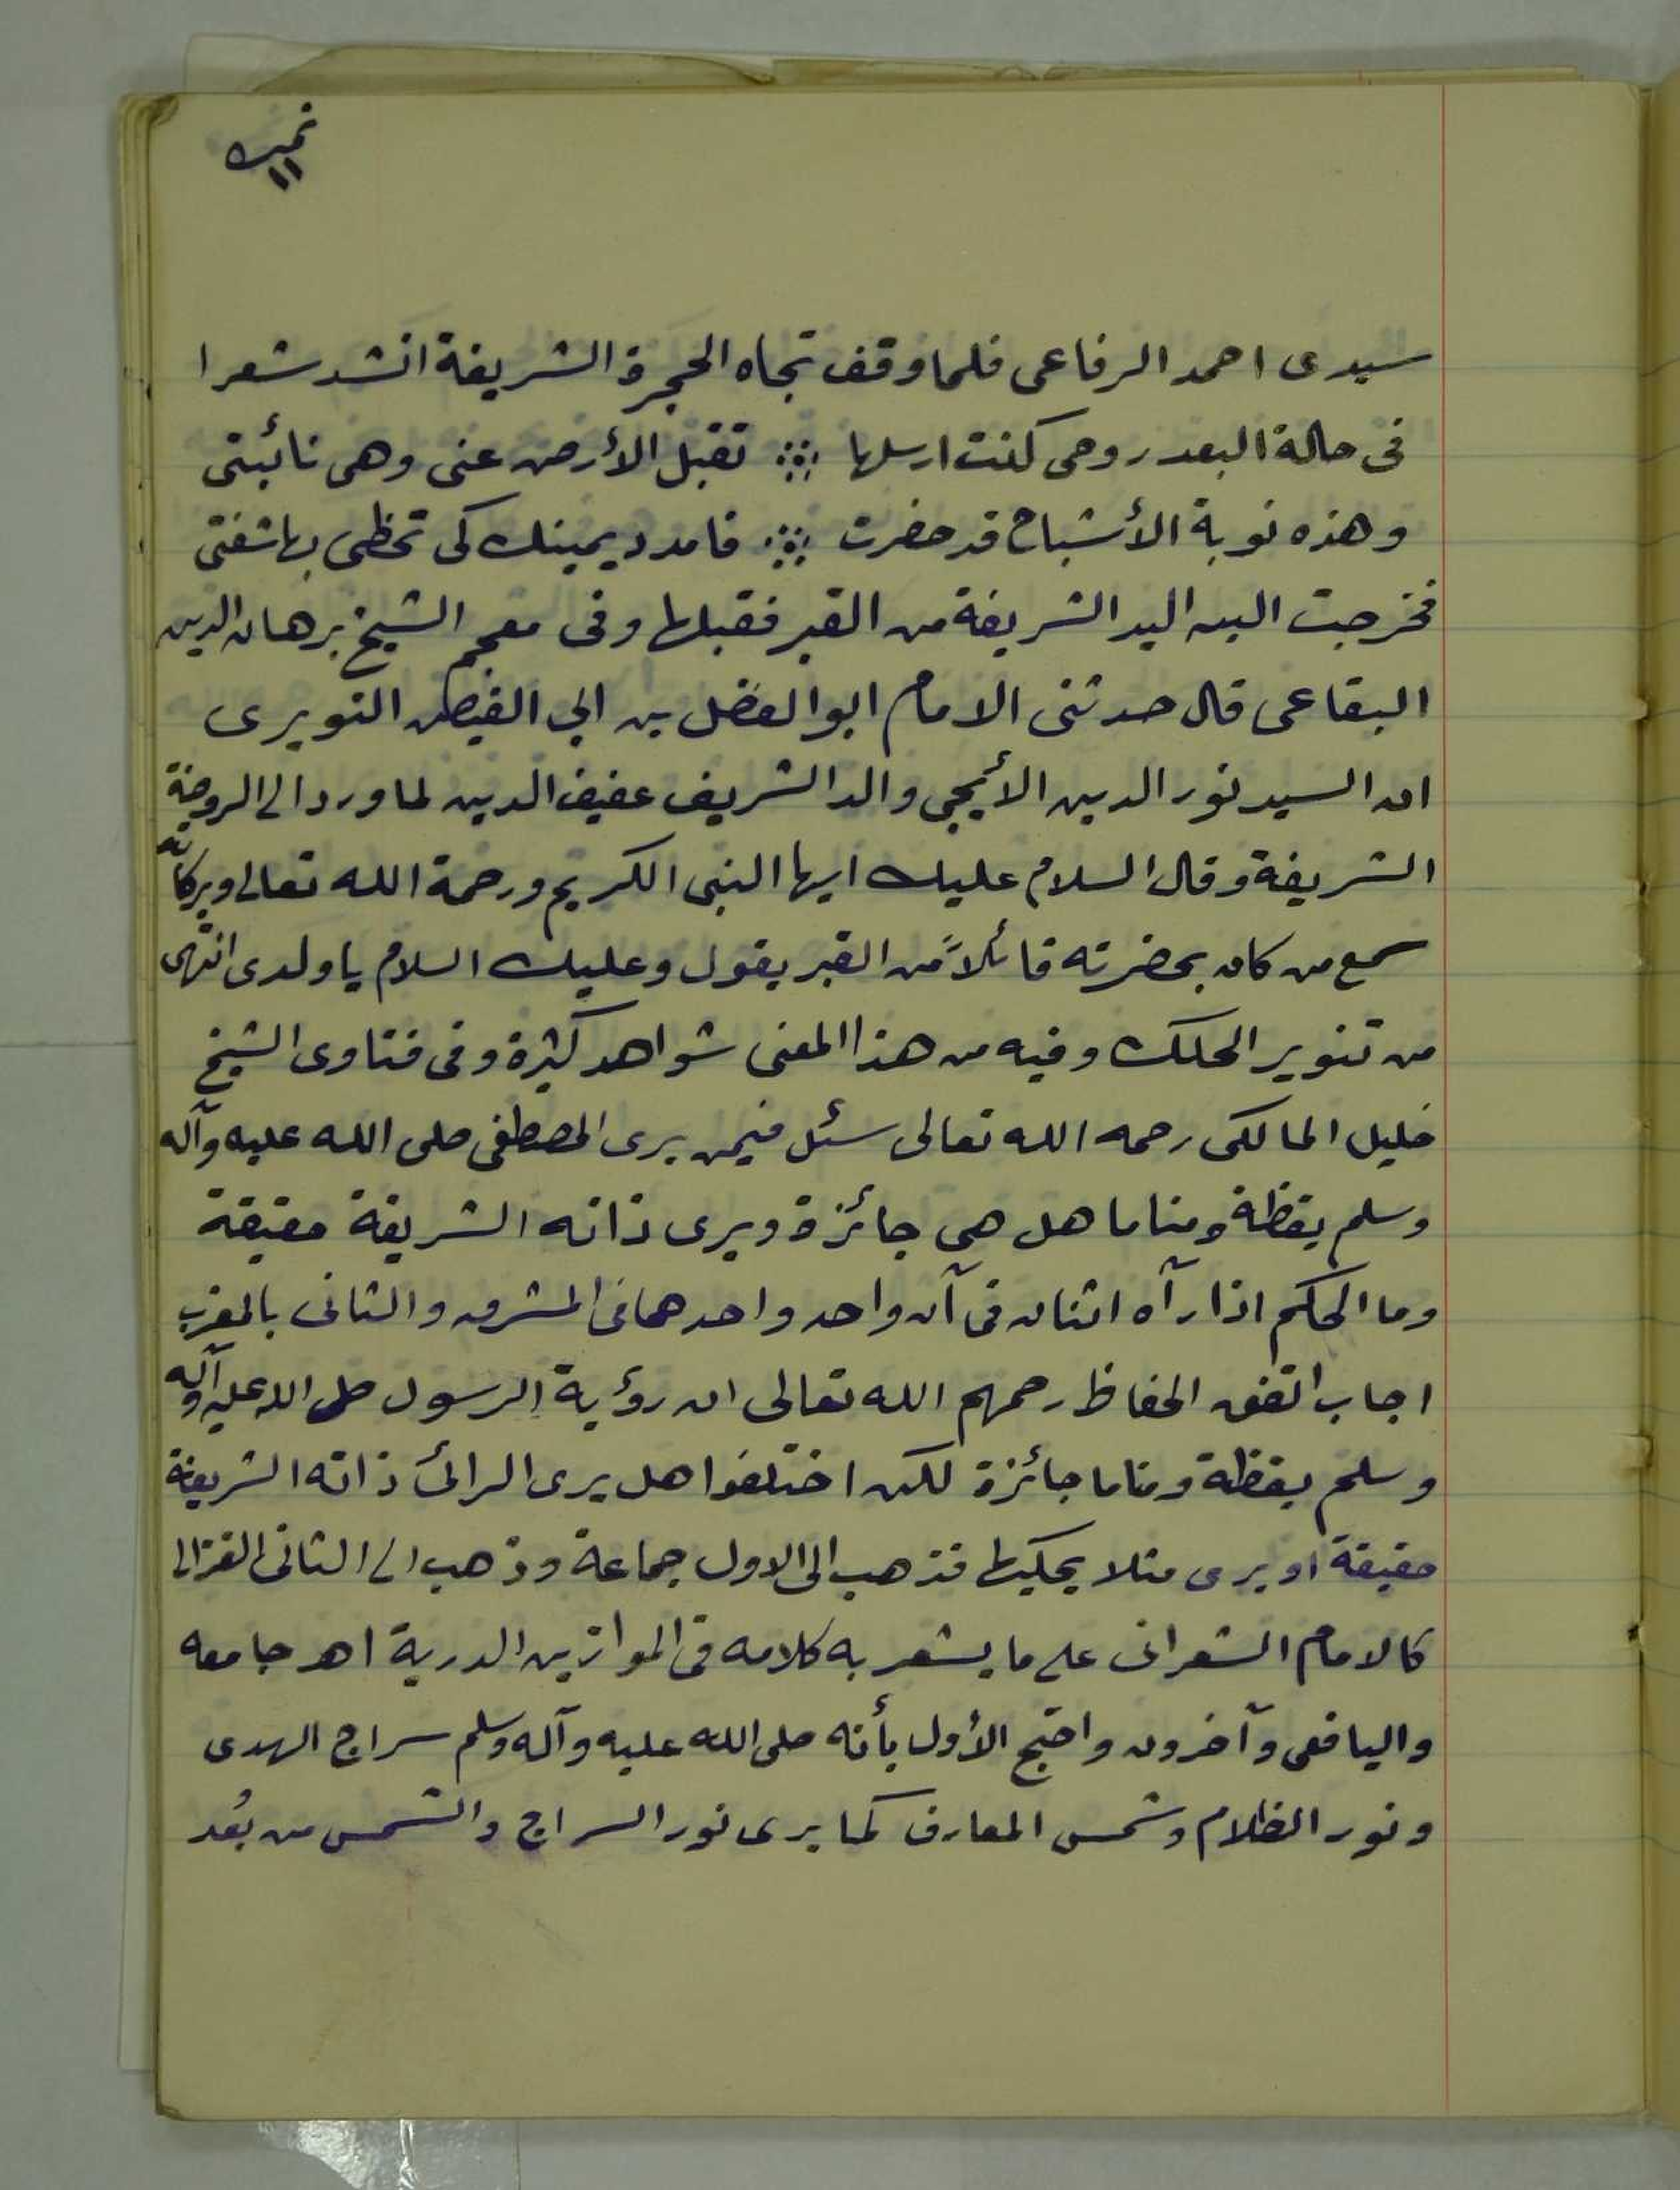 نمرة
١١
سيدى احمد الرفاعى فلما وقف تجاه الحجرة الشريفة انشد شعرا
فى حالة البعد روحى كنت ارسلها ∴ تقبل الأرض عنى وهى نائبتى
وهذه نوبة الأشباح قد حضرت ∴ فامدد يمينك كى تحظى بها شفتى
فخرجت اليه اليد الشريفة من القبر فقبلها وفى معجم الشيخ برهان الدين
البقاعى قال حدثنى الامام ابو الفضل بن ابى الفيض النويرى
ان السيد نور الدين الأيجى والد الشريف عفيف الدين لما ورد الى الروضة
الشريفة وقال السلام عليك ايها النبى الكريم ورحمة الله تعالى وبركاته
سمع من كان بحضرته قائلاً من القبر يقول وعليك السلام يا ولدى انتهى
من تنوير الحلك وفيه من هذا المعنى شواهد كثيرة وفى فتاوى الشيخ
خليل المالكى رحمه الله تعالى سئل فيمن يرى المصطفى صلى الله عليه وآله
وسلم يقظة ومناما هل هى جائزة ويرى ذاته الشريفة حقيقة
وما الحكم اذا رآه اثنان فى آن واحد واحدهما فى المشرق والثانى بالمغرب
اجاب اتفق الحفاظ رحمهم الله تعالى ان رؤية الرسول صلى الله عليه وآله
وسلم يقظة ومناما جائزة لكن اختلفوا هل يرى الرائى ذاته الشريفة
حقيقة او يرى مثلا يحكيها فذهب الى الاول جماعة وذهب الى الثانى الغزالى
كالامام الشعرانى على ما يشعر به كلامه فى الموازين الدرية اهـ جامعه
واليافعى وآخرون واحتج الأول بأنه صلى الله عليه وآله وسلم سراج الهدى
ونور الظلام وشمس المعارف كما يرى نور السراج والشمس من بُعد